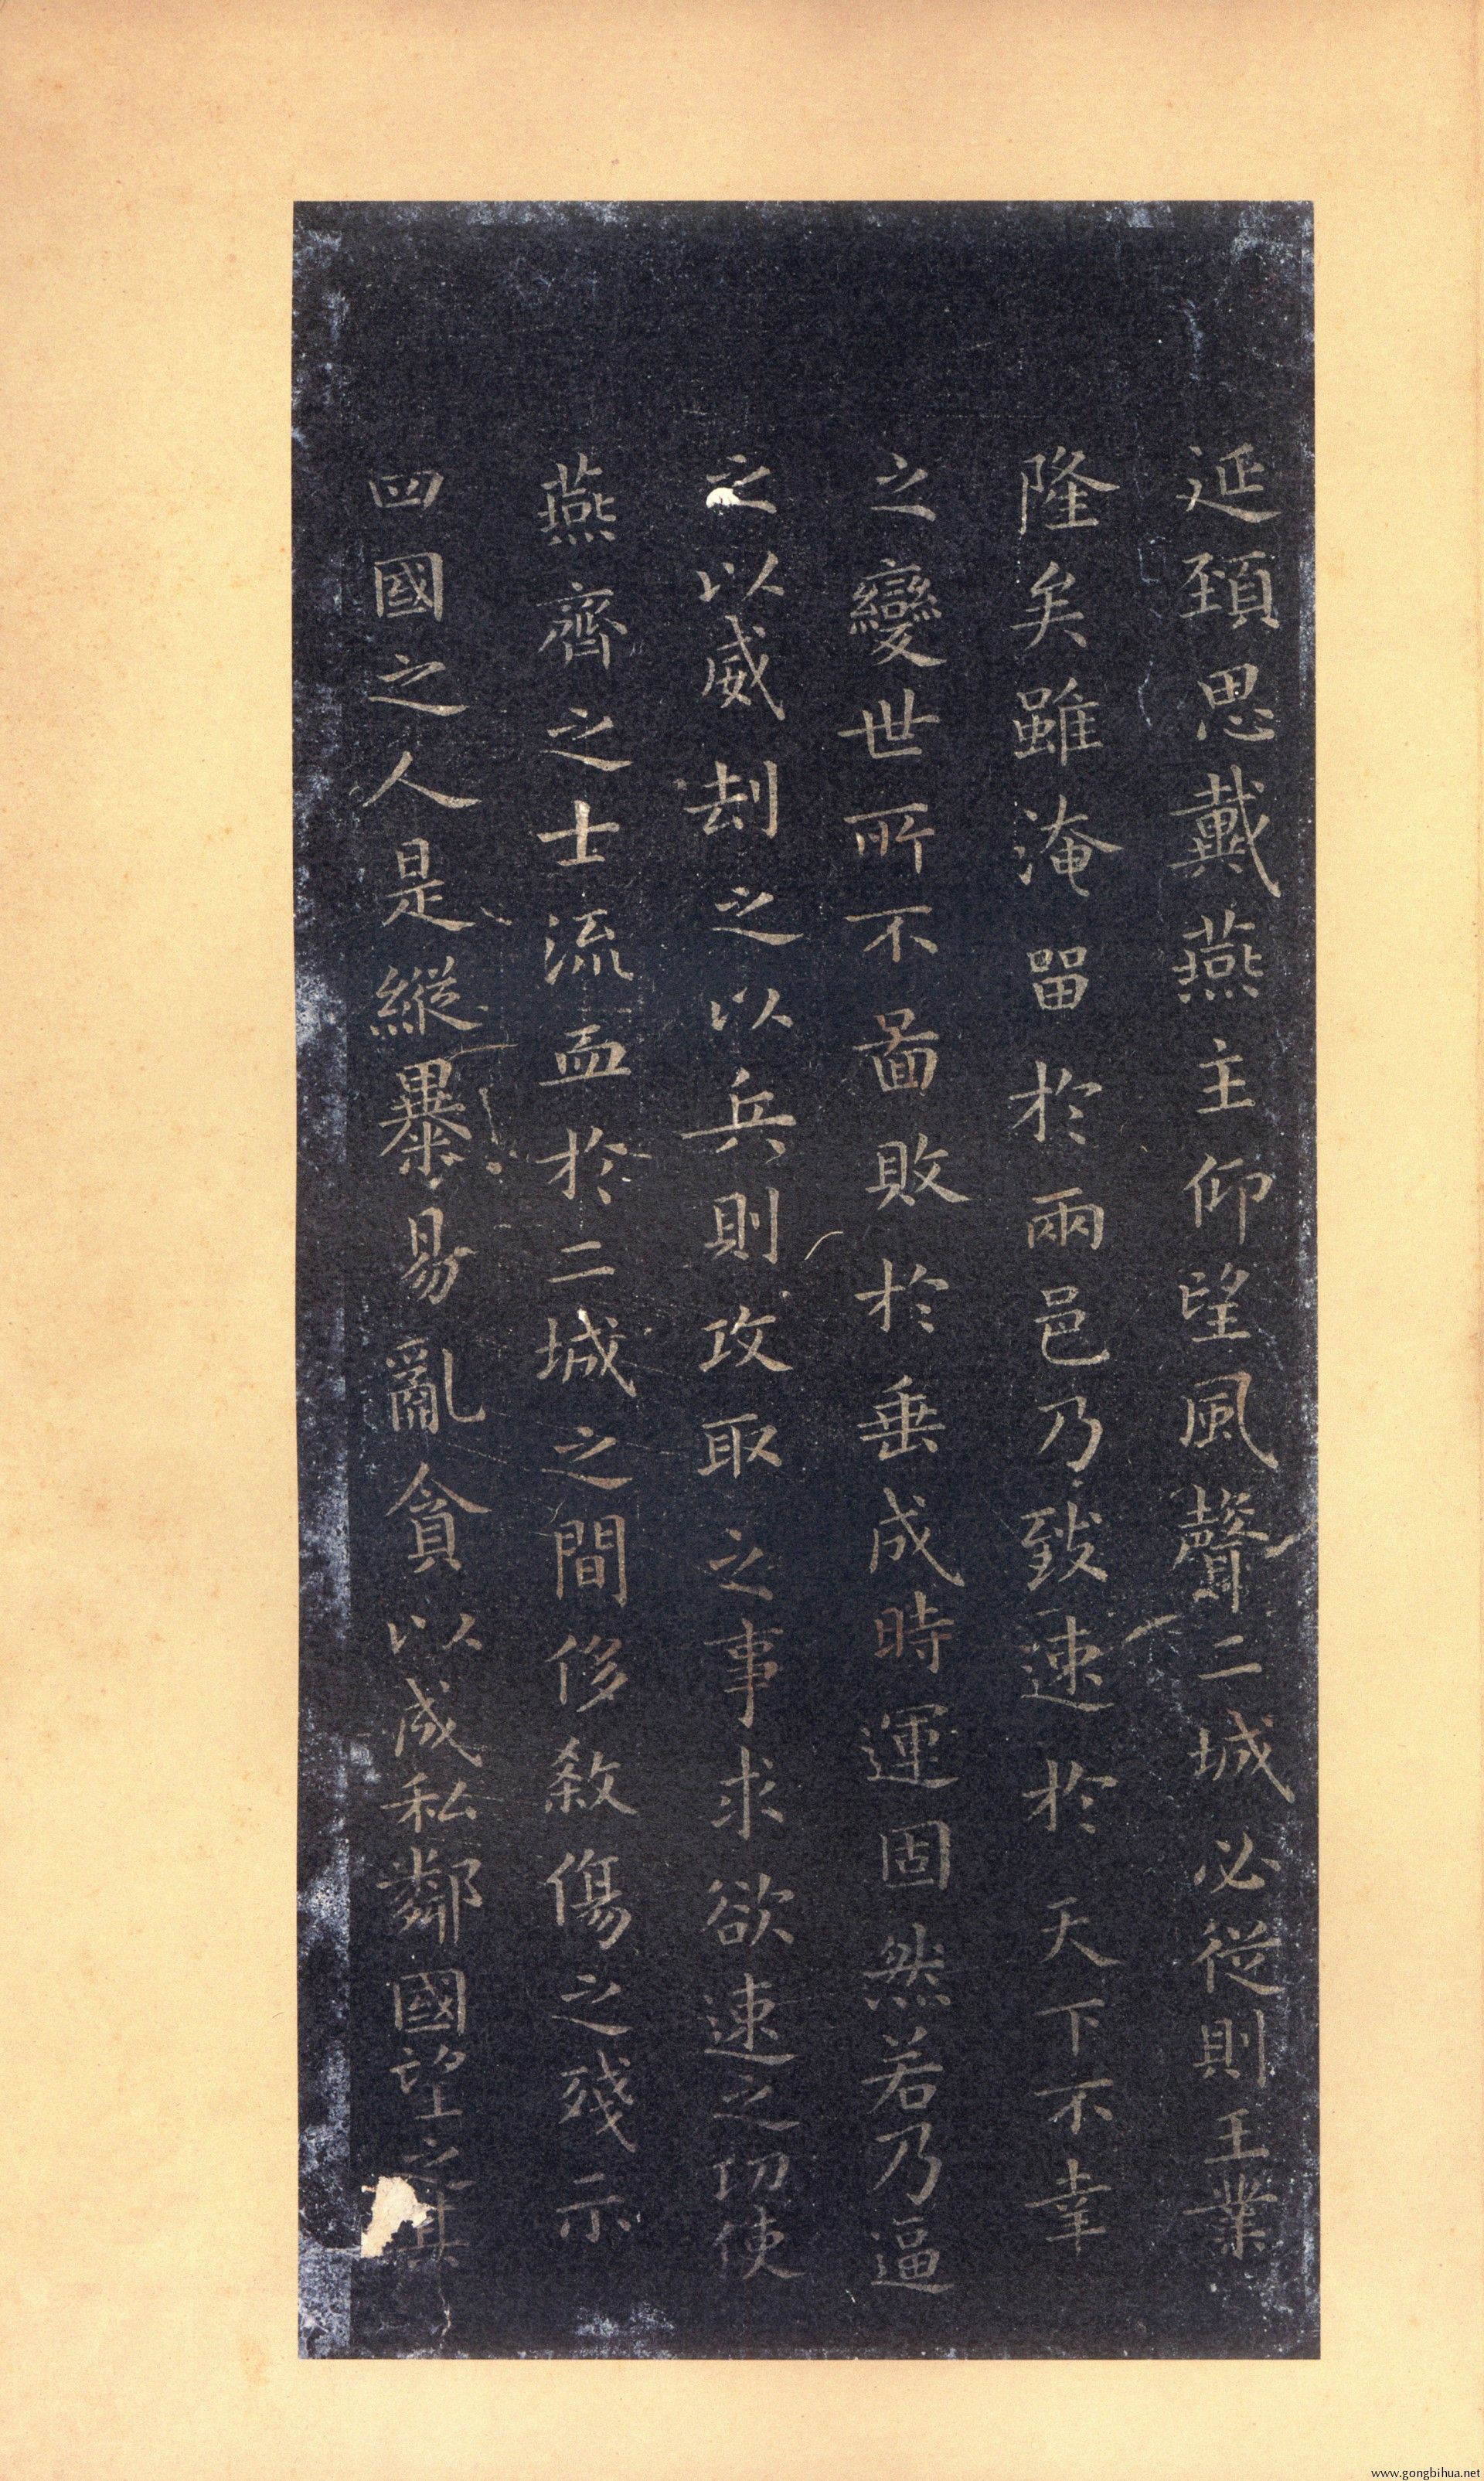 延頚思戴燕主仰望風聲二城必從則王業
隆矣雖淹留於兩邑乃致速於天下不幸
之變世所不圖敗於垂成時運固然若乃逼
之以威刼之以兵則攻取之事求欲速之功使
燕齊之士流血於二城之間侈殺傷之殘示
四國之人是縱暴易亂貪以成私鄰國望之其
www.gongbihua.net